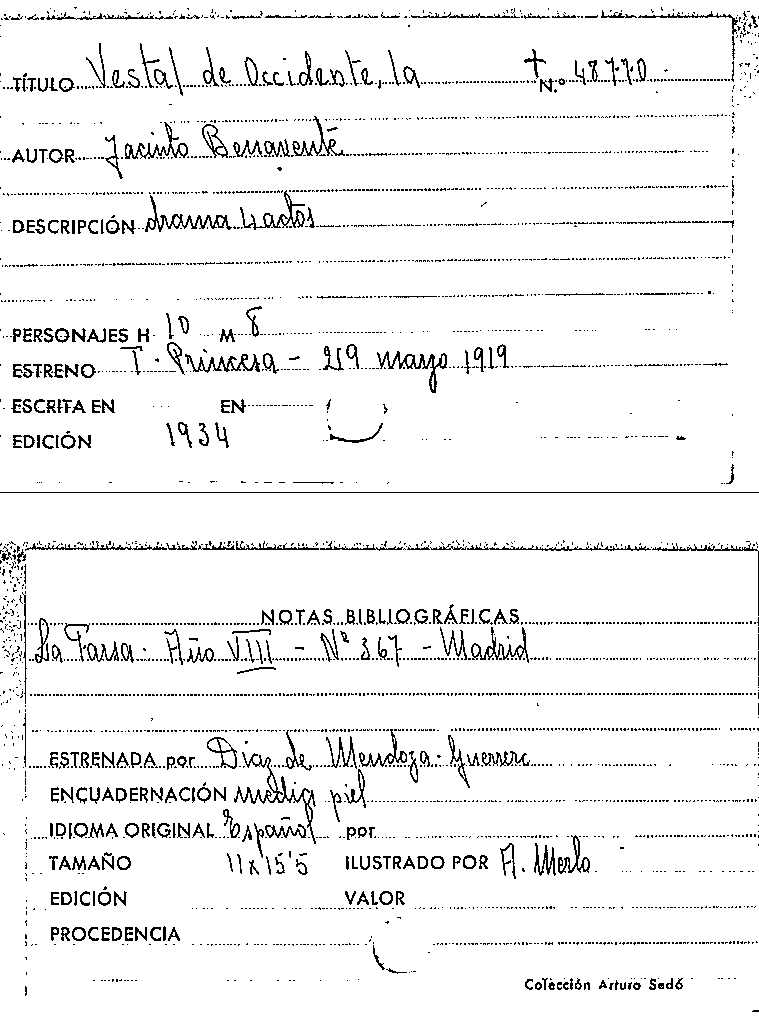 TÍTULO Vestal de Occidente, la † N.º 48770
AUTOR Jacinto Benavente
DESCRIPCIÓN drama 4 actos
PERSONAJES H 10 M 8
ESTRENO T. Princesa - 29 marzo 1919
ESCRITA EN EN
EDICIÓN 1934
NOTAS BIBLIOGRÁFICAS
La Farsa. Año VIII - Nº 367 - Madrid
ESTRENADA por Diaz de Mendoza-Guerrero
ENCUADERNACIÓN media piel
IDIOMA ORIGINAL Español por
TAMAÑO 11x15'5 ILUSTRADO POR A. Merlo
EDICIÓN VALOR
PROCEDENCIA
Colección Arturo Sedó